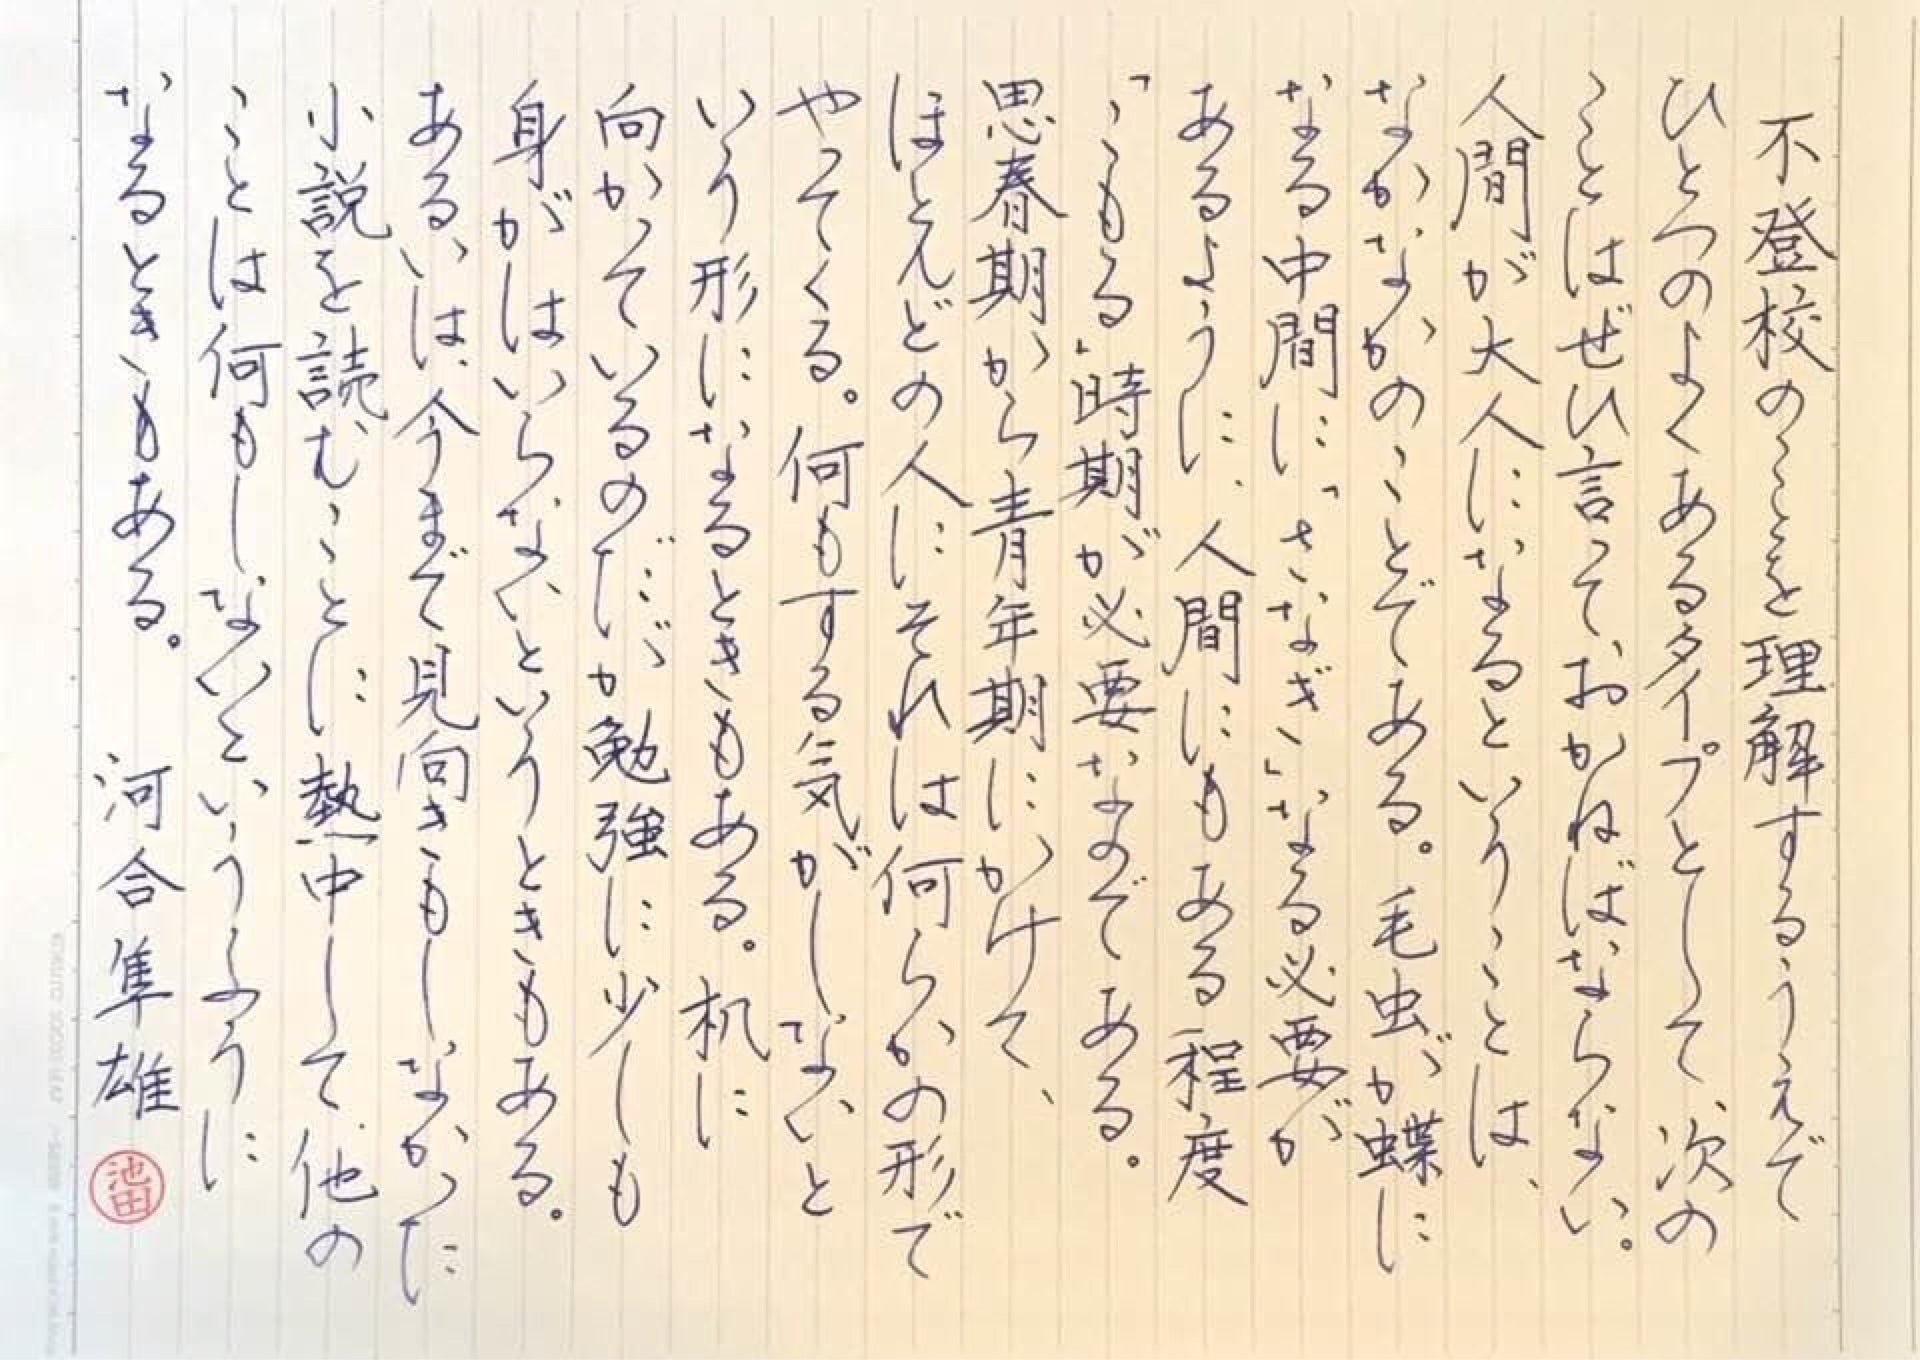 不登校のことを理解するうえで
ひとつのよくあるタイプとして、次の
ことはぜひ言って、おかねばならない。
人間が大人になるということは、
なかなかなかのことである。毛虫が蝶に
なる中間に「さなぎ」なる必要が
あるように、人間にもある程度
「こもる」時期が必要なのである。
思春期から青年期にかけて、
ほとんどの人にそれは何らかの形で
やってくる。何もする気がしないと
いう形になるときもある。机に
向かっているのだが勉強に少しも
身がはいらないというときもある。
あるいは、今まで見向きもしなかった
小説を読むことに熱中して、他の
ことは何もしないというふうに
なるときもある。 河合隼雄
池田